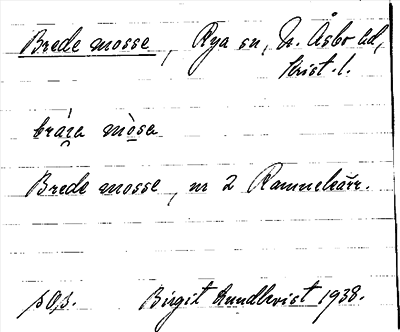 Brede mosse, Rya sn, N. Åsbo hd,
Krist. l.
bráza mòsa
Brede mosse, nr 2 Ramnekärr.
s. 0, s. Birgit Rundkvist 1938.